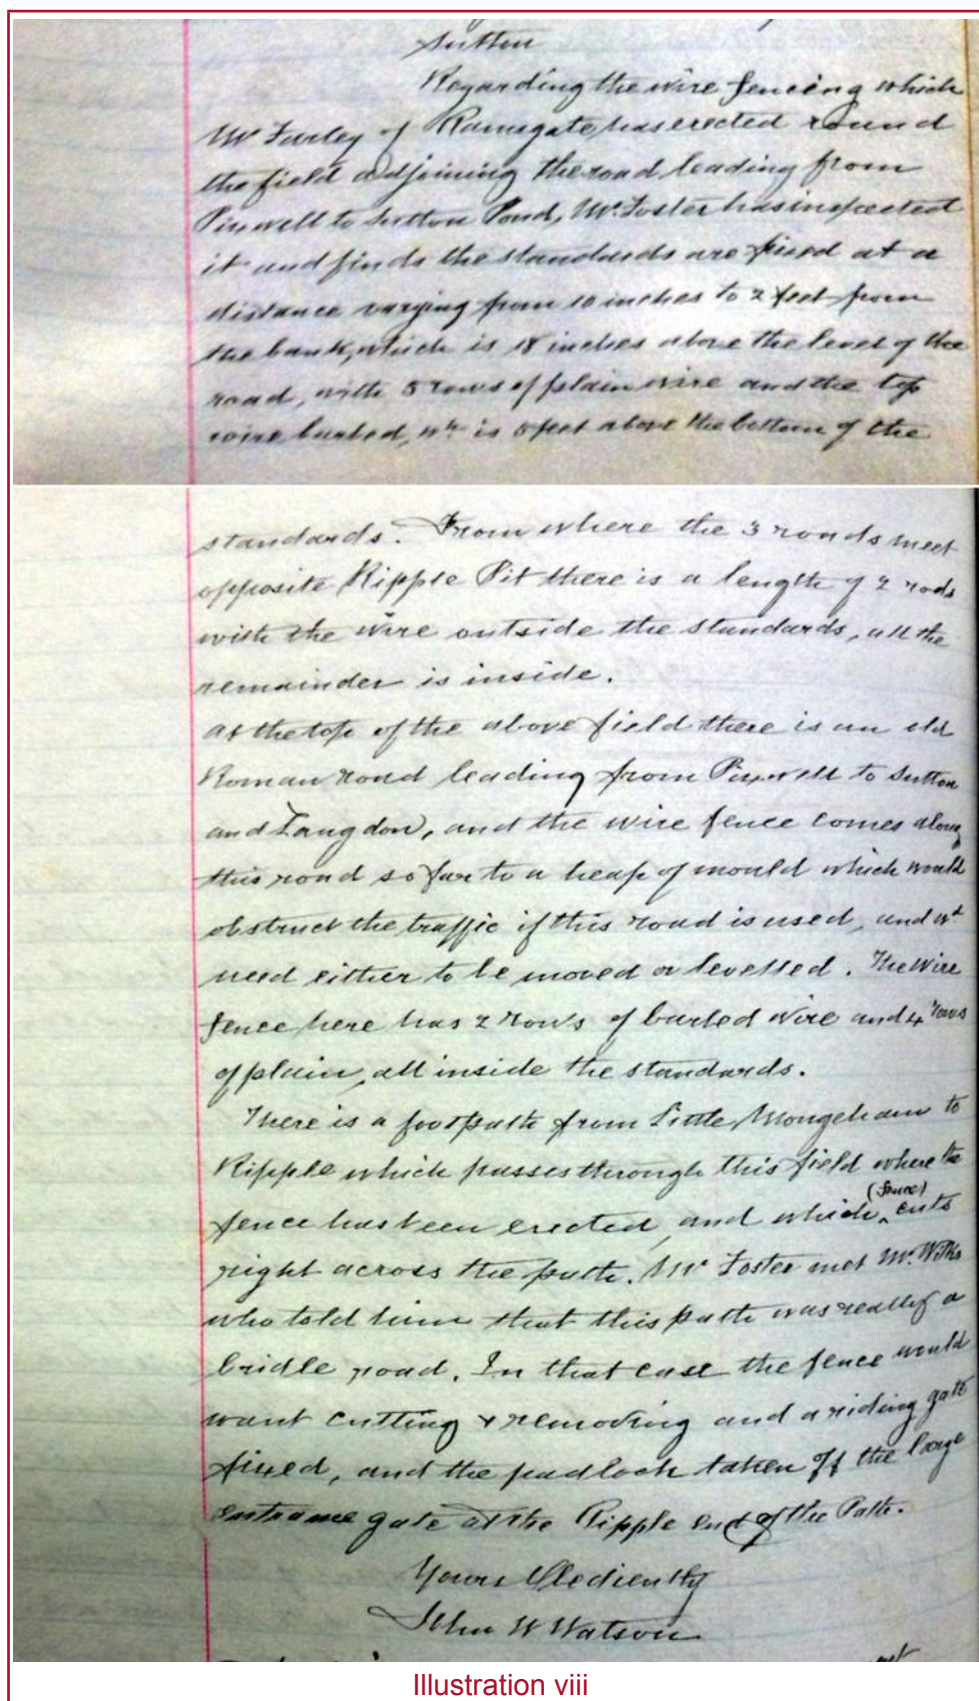 Sutton
Regarding the wire fencing which
Mr Farley of Ramsgate, has erected round
the field adjoining the road leading from
Pixwell to Sutton Pond, Mr. Foster has inspected
it and finds the standards are fixed at a
distance varying from 10 inches to 2 feet from
the bank, which is 18 inches above the level of the
road, with 5 rows of plain wire and the top
wire barbed, wh. is 5 feet above the bottom of the
standards. From where the 3 roads meet
opposite Ripple Pit there is a length of 2 rods
with the wire outside the standards, all the
remainder is inside.
At the top of the above field there is an old
Roman road leading from Pixwell to Sutton
and Langdon, and the wire fence comes along
this road so far to a heap of mould which would
obstruct the traffic if this road is used, and wd
need either to be moved or levelled. The wire
fence here has 2 rows of barbed wire and 4 rows
of plain, all inside the standards.
There is a footpath from Little Mongeham to
Ripple which passes through this field where the
fence has been erected, and which (fence) cuts
right across the path. Mr Foster met Mr.
who told him that this path was really a
bridle road. In that case the fence would
want cutting & removing and a riding gate
fixed, and the padlock taken off the large
entrance gate at the Ripple end of the Path.
Yours Obediently
John W Watson
Illustration viii